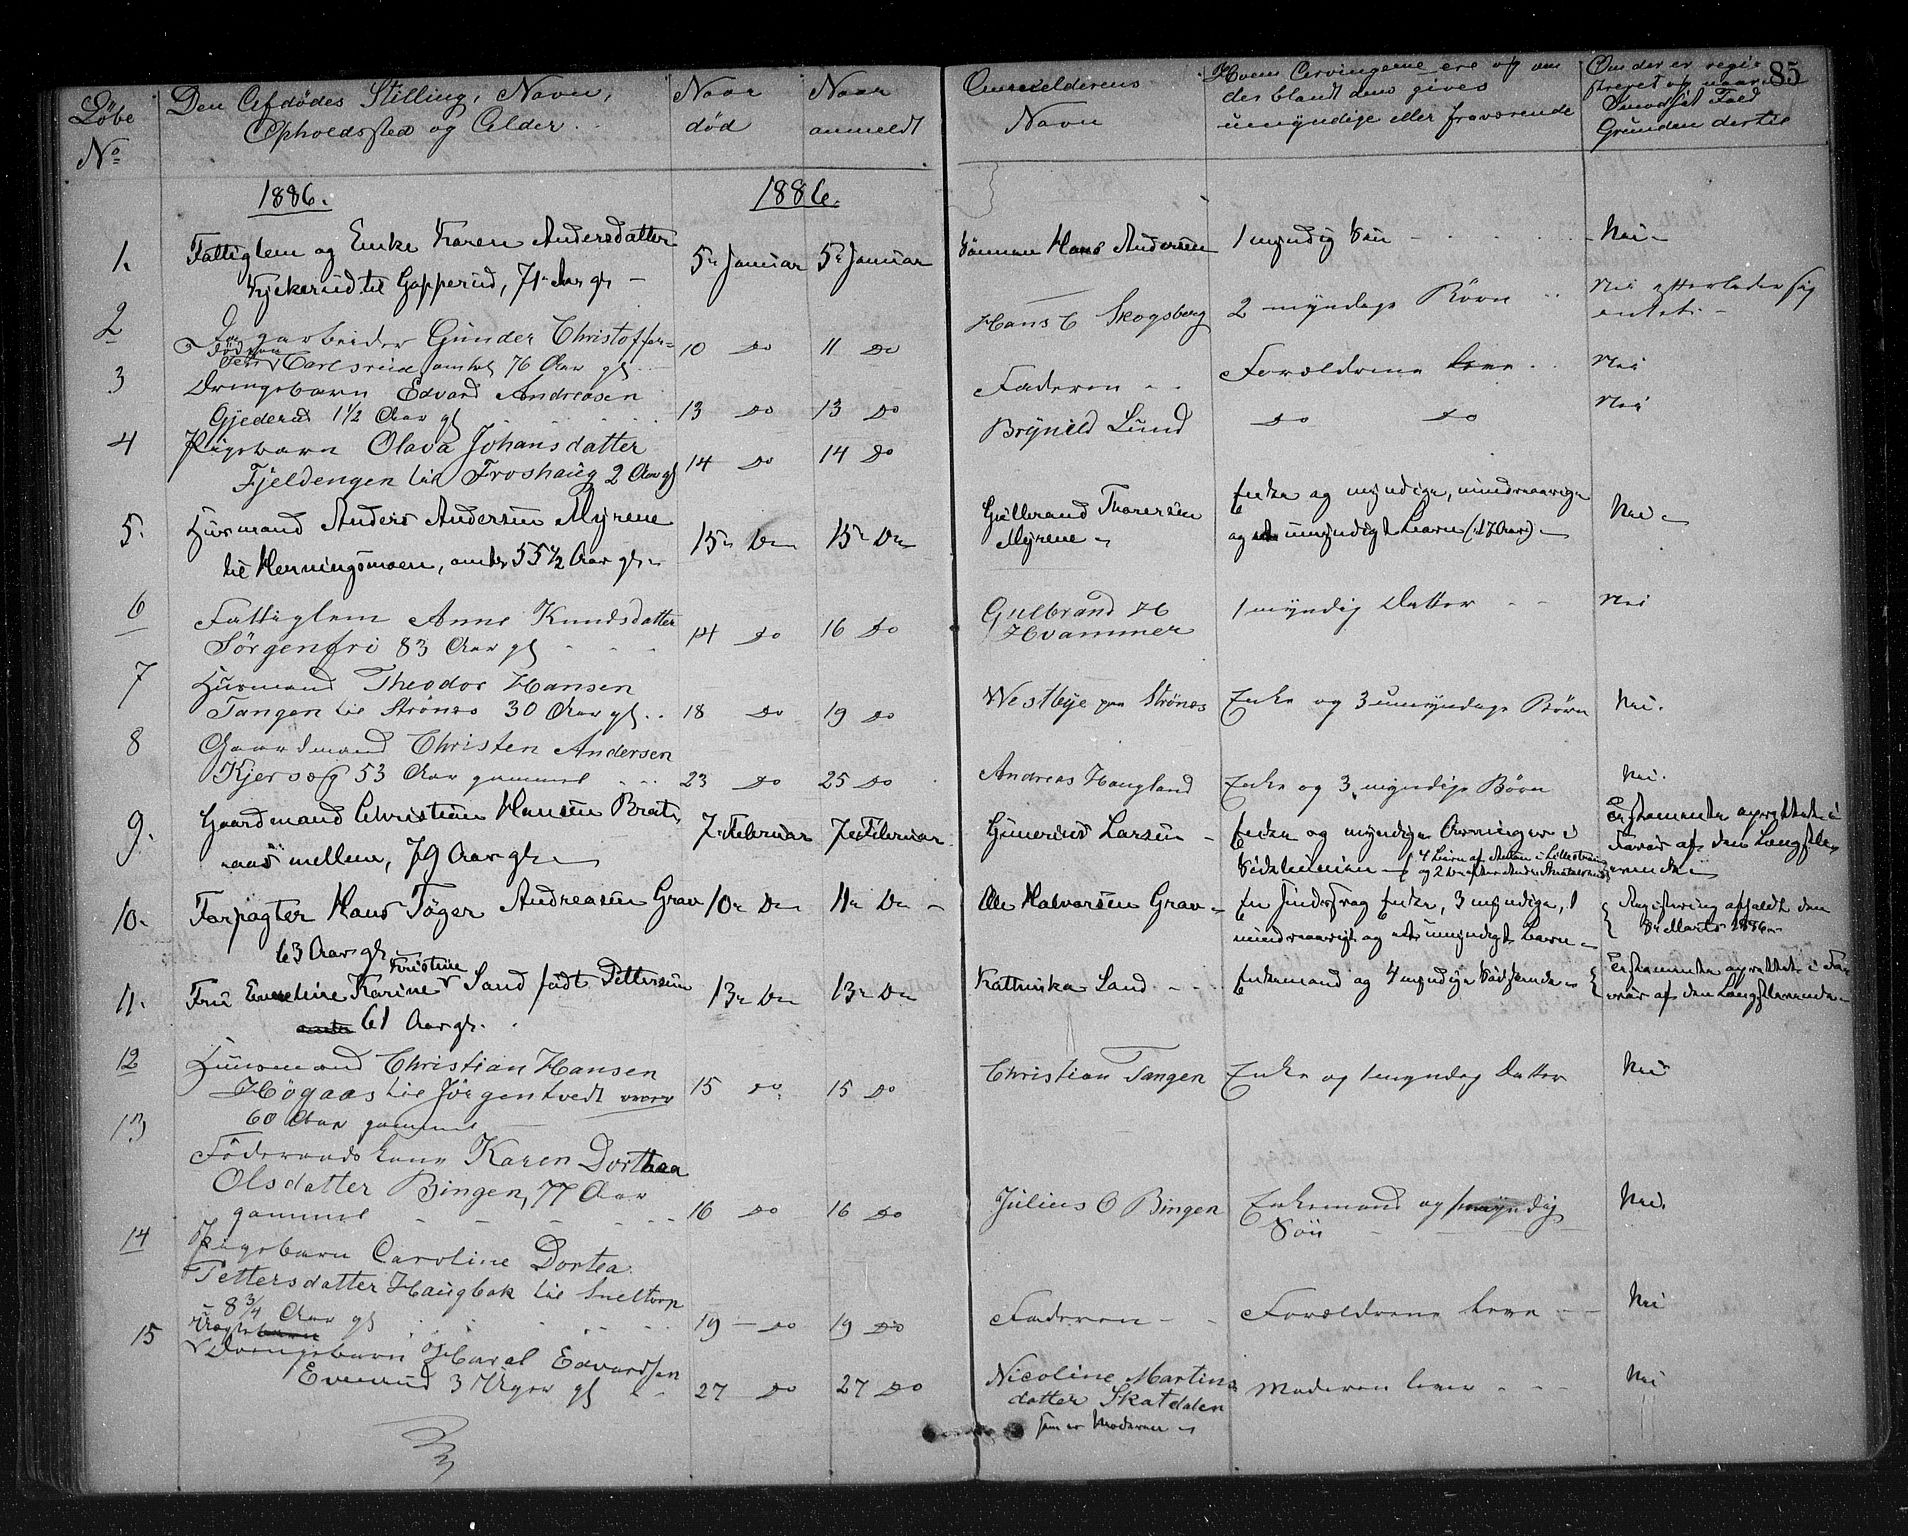 85
Løbe No
Den Afdødes Stilling, Navn,
Opholdssted og Alder.
Naar død
Naar anmeldt
Anmelderens Navn
Hvem Arvingerne ere og om
der blandt dem gives
umyndige eller fraværende
Om der er regi-
streret og naar i
modsat Fald
Grunden dertil
1886.
1886.
1. Fattiglem og Enke Karen Andersdatter
til Gopperud, 71 Aar gl. 5. Januar 5. Januar Sønnen Hans Andersen 1 myndig Søn Nei
2 Dagarbeider Gunder Christoffer-
sen Carlsrud 76 Aar gl. 10 Do 11 Do Hans C Skogsberg 2 myndige Børn Nei efterlader sig
intet.
3 Drengebarn Edvard Andreasen
Gjederud 1 1/2 Aar gl 13 Do 13 Do Faderen Forældrene leve Nei
4 Pigebarn Olava Johansdatter
Fjeldengen til Froshaug 2 Aar gl 14 Do 14 Do Brynild Lund Do Do Nei
5. Husmand Anders Andersen Myrene
til Henningsmoen, 55 1/2 Aar gl. 15. Do 15. Do Gulbrand Thoresen
Myrene Enke og myndige, mindreaarige
og et umyndigt Barn (17 Aar) Nei
6 Fattiglem Anne Knudsdatter
Sørgenfri 83 Aar gl 14 Do 16 Do Gulbrand H
Hvammer 1 myndig Datter Nei
7 Husmand Theodor Hansen
Tangen til Strønes 30 Aar gl. 18 Do 19 Do Westbye paa Strønes Enke og 3 umyndige Børn Nei.
8 Gaardmand Christen Andersen
53 Aar gammel 23 Do 25 Do Andreas Haugland Enke og 3 myndige Børn Nei.
9. Gaardmand Christian Hansen Brat-
aas mellem, 79 Aar gl. 7. Februar 7. Februar Gunerius Larsen Enke og myndige Arvinger i
Sidelinien 4 Børn af Anton i Lillestrøm
Testamente oprettet i
Favør af den Længstle-
vende
10. Forpagter Hans Tøger Andreasen Grav
63 Aar gl. 10. Do 11. Do Ole Halvorsen Grav Enke, 3 myndige, 1
mindreaarigt og et umyndigt Barn Registrering afholdt den
8. Marts 1886
11. Fru Karine Kristine Sand født Pettersen
61 Aar gl. 13. Do 13. Do Kathinka Sand Enkemand og 4 myndige Testamente oprettet i Fa-
vør af den Længstlevende
12 Husmand Christian Hansen
Høgaas til Jørgentvedt over
60 Aar gammel 15 Do 15 Do Christian Tangen Enke og 1 myndig Datter Nei
13 Føderaadskone Karen Dorthea
Olsdatter Bingen, 77 Aar
gammel 16 Do 16 Do Julius O Bingen Enkemand og 1 myndig
Søn Nei.
14 Pigebarn Caroline Dortea
Pettersdatter Haugbak til Sneltorp
8 3/4 Aar gl 19 Do 19 Do Faderen Forældrene leve Nei
15 Uægte Drengebarn Edvardsen
3 Uger gl 27 Do 27 Do Nicoline Martins-
datter Skatdalen
som er Moderen Moderen lever Nei